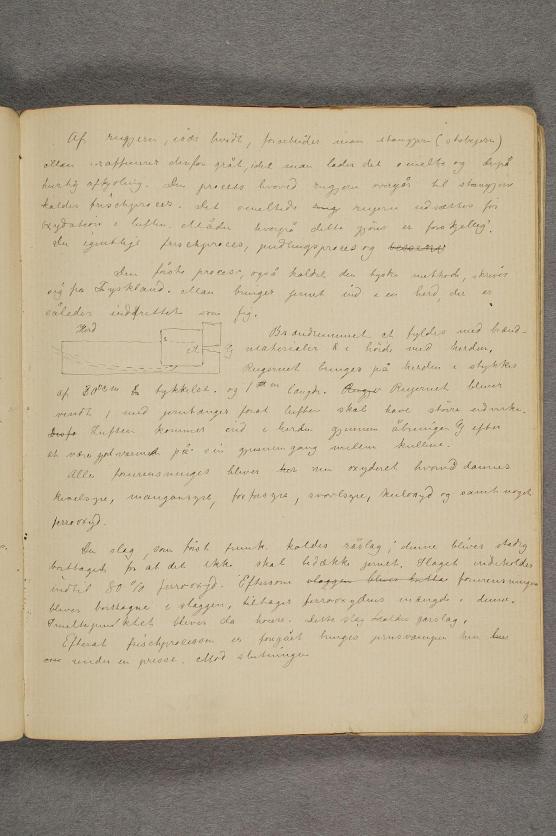 Af rugjern, især hvidt, fremstilles man stangjern (stabejern)
Man raffinerer derfor gråt, idet man lader det smelte og derpå
hurtig afkjøling. Den proces hvorved rugjern overgår til stangjern
kaldes frischproces. Det smeltede rujern udsættes for
oxydation i luften. Måden hvorpå dette gjøres er forskjellig.
Den igentlige frischproces, pudlingsproces og
Den förste proces, også kaldet den tyske methode, skriver
sig fra Tyskland. Man bringer jernet ind i en herd, der er
således indrettet som fig.
Herd
Brandrummet A fyldes med brænd-
materialer i höide med herden.
Rujernet bringes på herden i stykker
af 80 cm tykkelse og 1 m længde. Rujernet bliver
vendt, med jerntænger forat luften skal have större indvirkn.
Luften kommer ind i herden gjennem åbningen G efter
at være godt varmed på sin gjennemgang mellem kullene.
Alle forurensninger bliver nu oxyderet hvorved dannes
kiselsyre, mangansyre, fosforsyre, svovlsyre, kuloxyd og samt noget
ferrooxyd.
Den slag, som först frem. kaldes råslag; denne blives stadig
borttaget, for at det ikke skal bedække jernet. Slaget indeholder
indtil 80% ferrooxyd. Eftersom slaggen bliver forurensninger
blever borttagne i slaggen, tiltager ferrooxydens mængde i denne.
Smeltepunktet bliver da höiere. Dette slag kaldes garslag.
Efterat frischprocessen er foregået bringes jernsvampen hen
under en presse. Mod slutningen
8